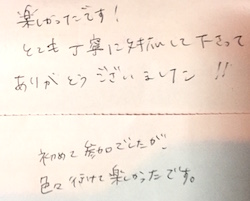 楽しかったです!
とても丁寧に対応して下さって
ありがとうございました!!
初めて参加でしたが
色々付けて楽しかったです。